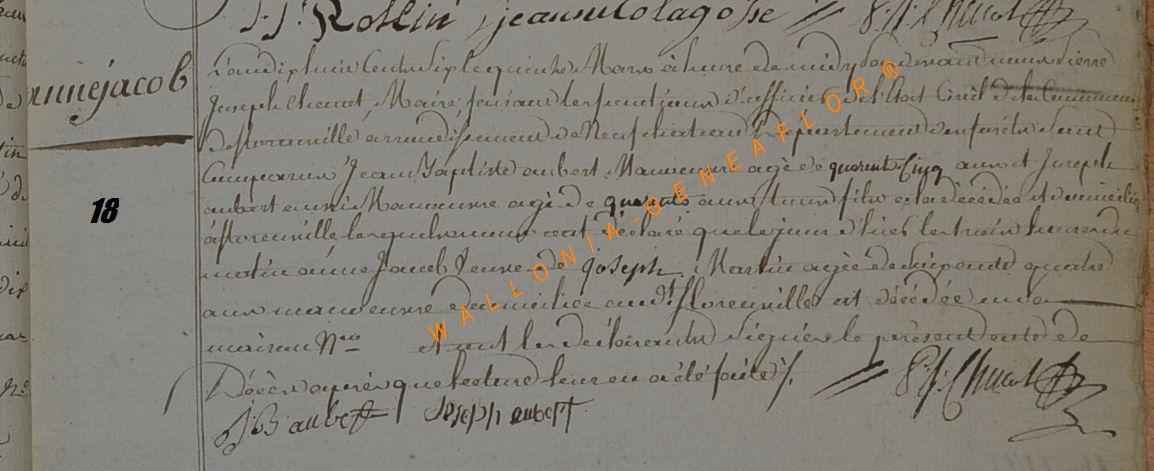 P. J. Rollin jean nicola gosse P. J. Chenot
anne jacob
L'an dix huit cent dix sept le quinze Mars à heure de midy pardevant nous Pierre
Joseph Chenot Maire faisant les fonctions d'officier de l'Etat Civil de la Commune
de florenville arrondissement de Neufchateau département des forêts sont
Comparus Jean Baptiste aubert Manoeuvre agé de quarente Cinq ans et Joseph
aubert aussi Manoeuvre agé de quarente ans de la décédée et domiciliés
à florenville lesquels nous ont déclaré que le jour d'hier les trois heures du
matin anne Jacob veuve de joseph Martin agée de soixante quatre
ans manoeuvre domiciliée audt. florenville est décédée en sa
maison No et ont les déclarants signés le présent acte de
Décès après que lecture leur en a été faite /.
18
JB aubert Joseph aubert P. J. Chenot
WALLONIA-GENEAFLOR®